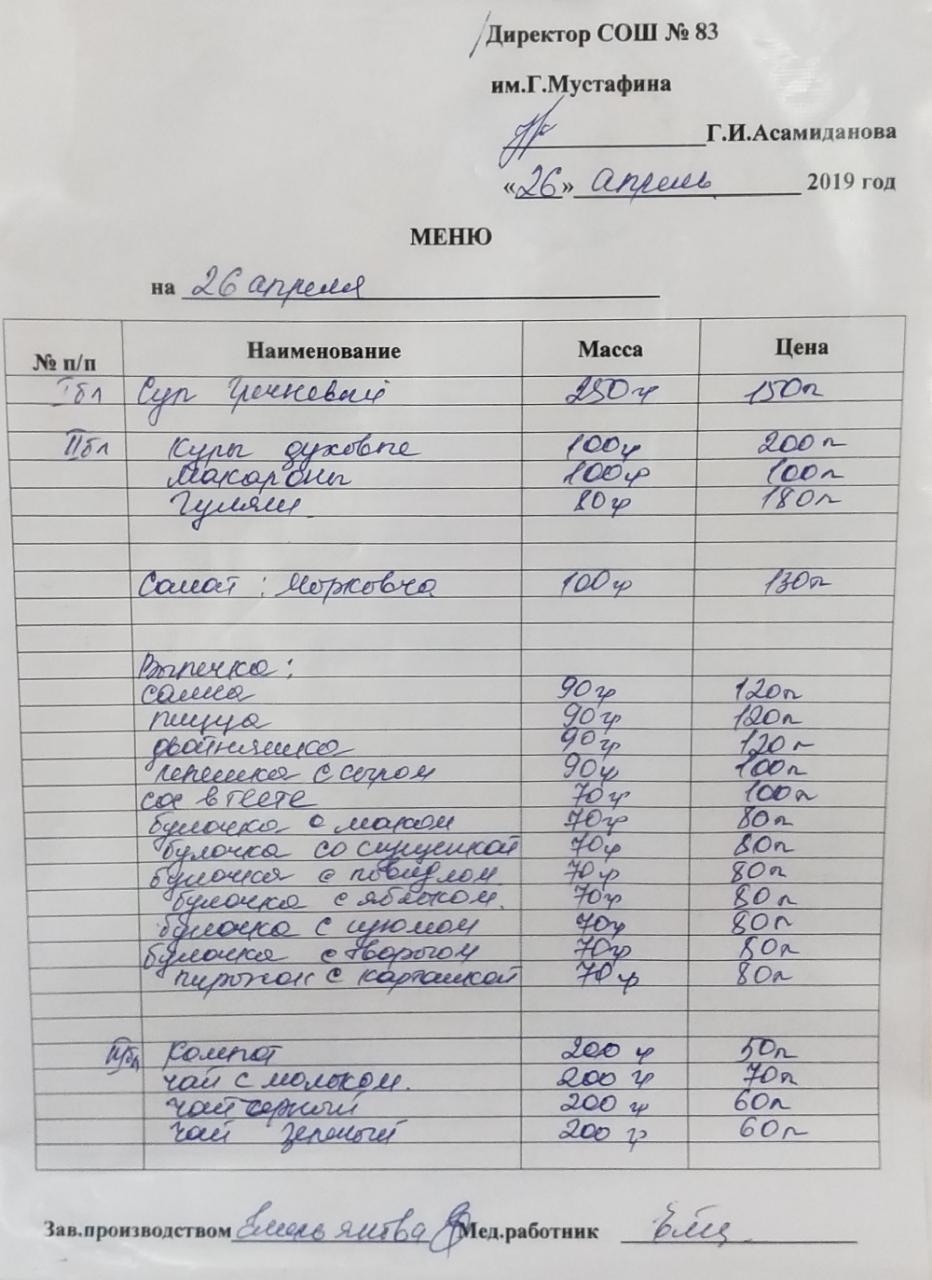 Директор СОШ № 83
им.Г.Мустафина
Г.И.Асамиданова
«26» апрель 2019 год
МЕНЮ
на 26 апреля
№ п/п Наименование Масса Цена
I бл Суп гречневый 250гр 150п
II бл Куры духовые 100гр 200п
Макароны 100гр 100п
Гуляш 80гр 180п
Салат : Морковча 100гр 130п
Выпечка :
самса 90гр 120п
пицца 90гр 120п
двойняшка 90гр 120п
лепешка с сыром 90гр 100п
сос в тесте 70гр 100п
булочка с маком 70гр 80п
булочка со сгущенкой 70гр 80п
булочка с повидлом 70гр 80п
булочка с яблоком. 70гр 80п
булочка с изюмом 70гр 80п
булочка с творогом 70гр 80п
пирожок с картошкой 70гр 80п
III бл Компот 200 гр 50п
чай с молоком. 200 гр 70п
чай черный 200 гр 60п
чай зеленый 200 гр 60п
Зав.производством Емельянова Мед.работник